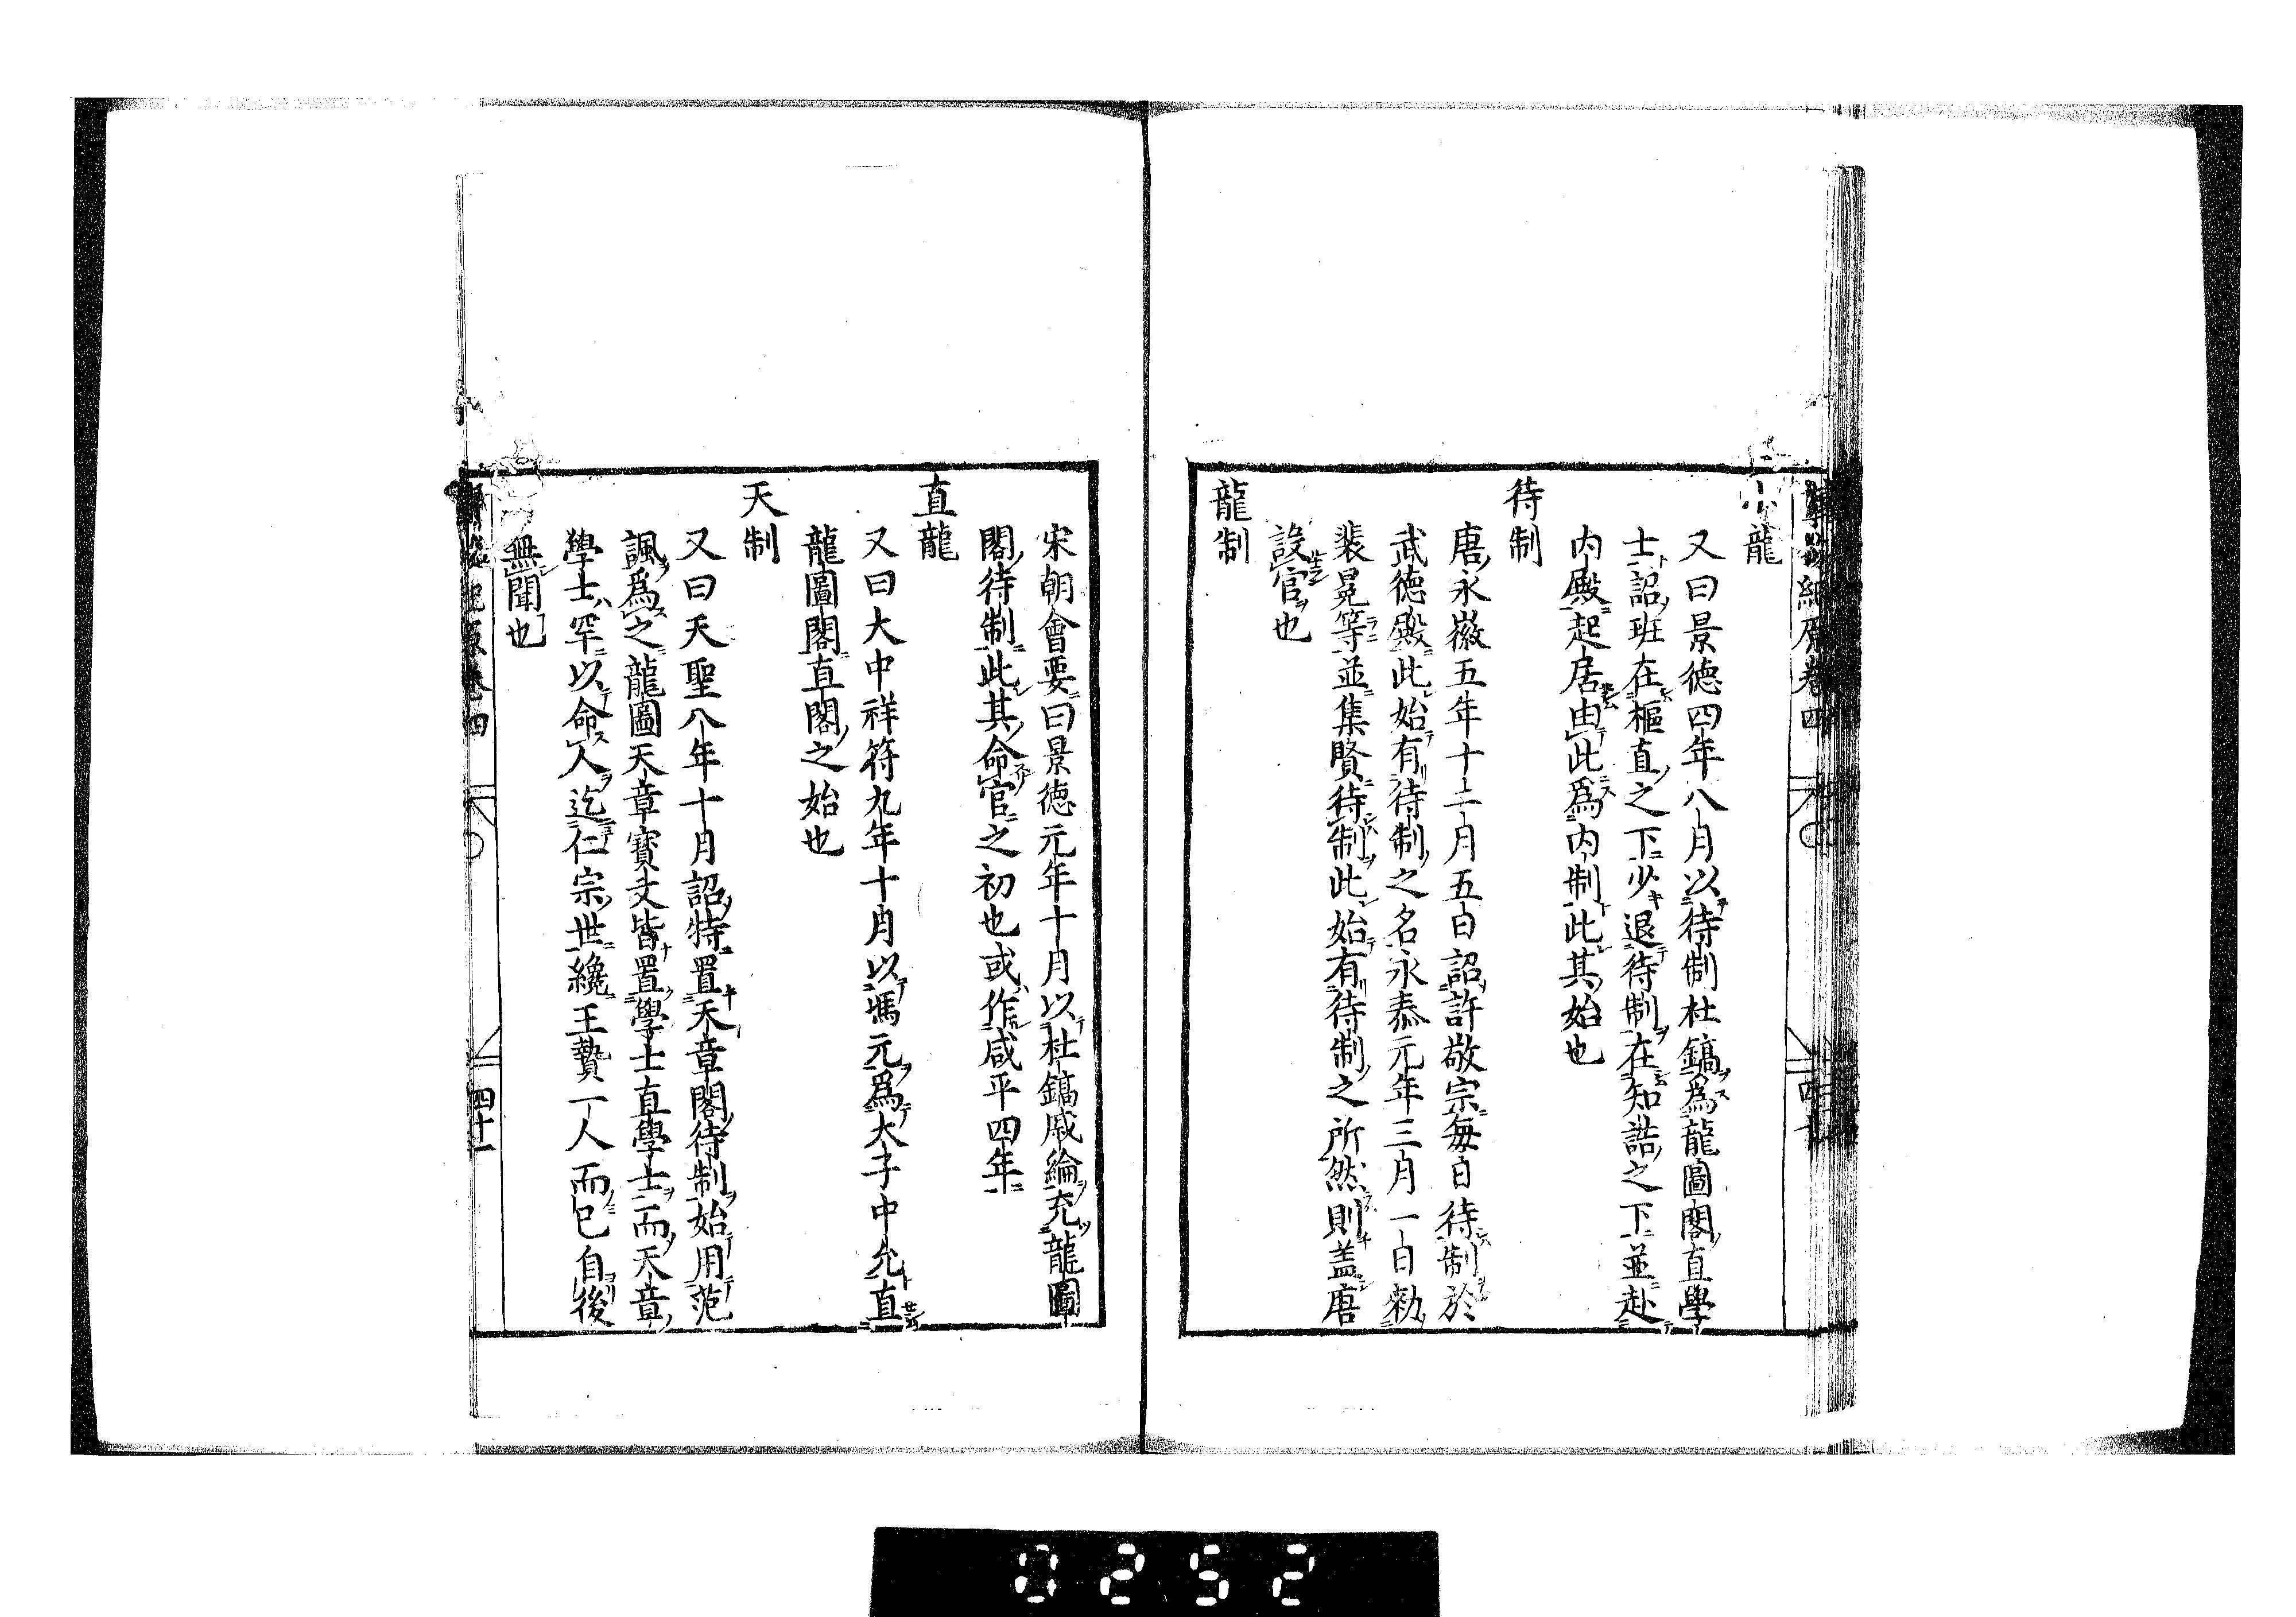 小龍
又曰景德四年八月以待制杜鎬爲龍圖閣直學
士詔班在樞直之下少退待制在知誥之下並赴
内殿起居由此爲内制此其始也
待制
唐永徽五年十二月五日詔許敬宗每日待制於
武德殿此始有待制之名永泰元年三月一日勑
裴冕等並集賢待制此始有待制之所然則盖唐
設官也
龍制
宋朝會要曰景德元年十月以杜鎬戚綸充龍圖
閣待制此其命官之初也或作咸平四年
直龍
又曰大中祥符九年十月以馮元爲太子中允直
龍圖閣直閣之始也
天制
又曰天聖八年十月詔特置天章閣待制始用范
諷爲之龍圖天章寳文皆置學士直學士而天章
學士罕以命人迄仁宗世纔王贄一人而已自後
無聞也
卷四
四十一
0252